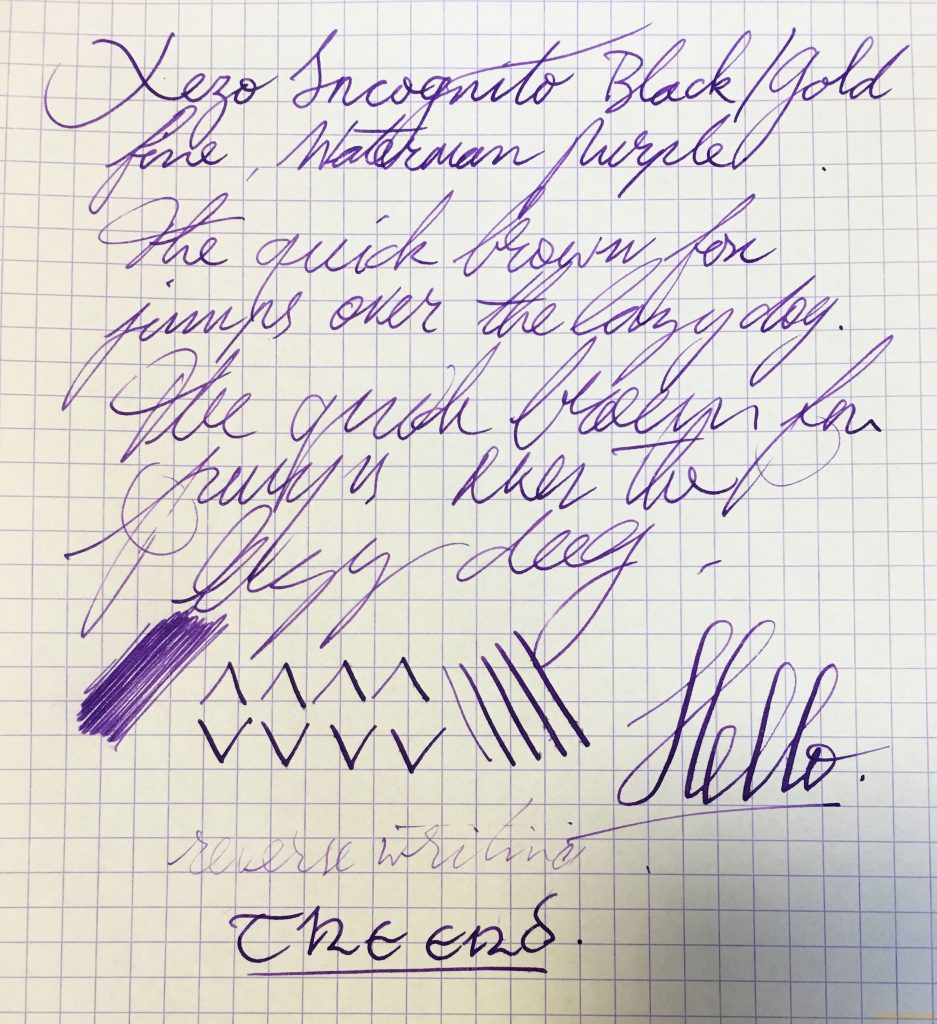 Xezo Incognito Black/Gold
fine, Waterman Purple.
The quick brown fox
jumps over the lazy dog.
The quick brown fox
jumps over the
lazy dog.
Hello.
reverse writing
The end.